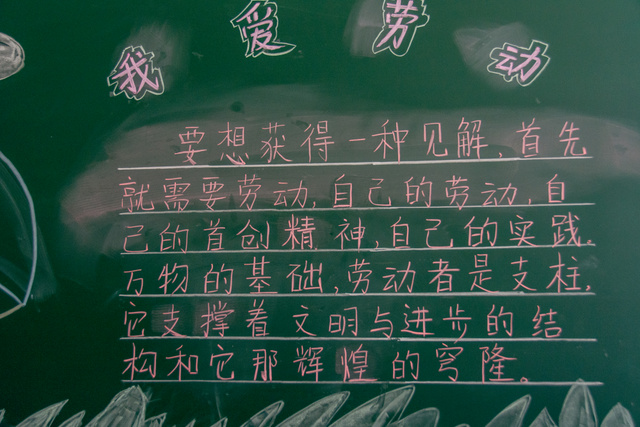 我爱劳动
要想获得一种见解,首先
就需要劳动,自己的劳动,自
己的首创精神,自己的实践.
万物的基础,劳动者是支柱,
它支撑着文明与进步的结
构和它那辉煌的穹隆。